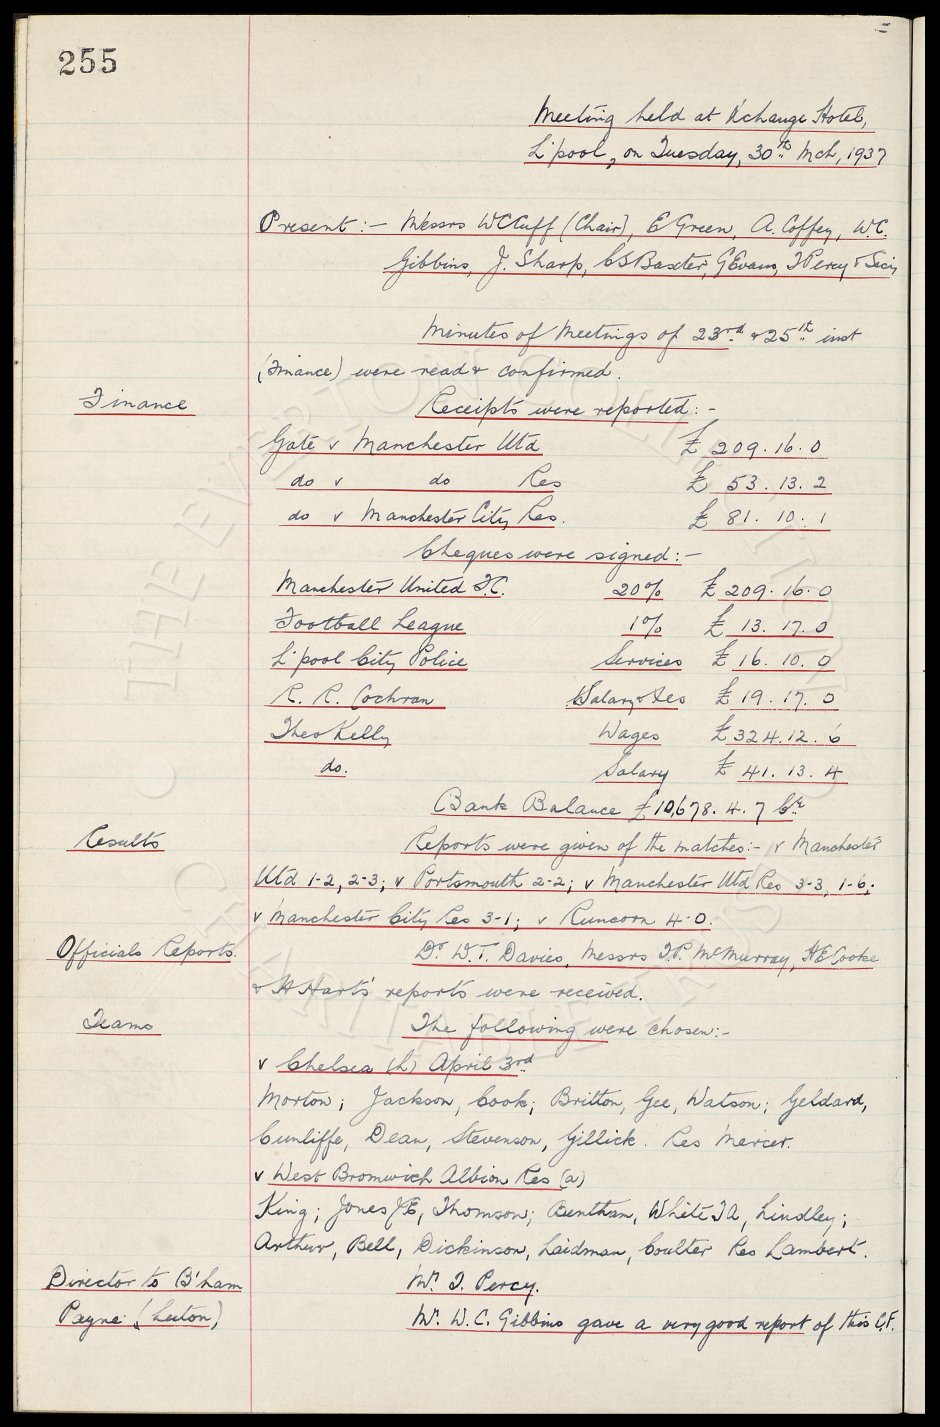 255
Meeting held at X'change Hotel,
L'pool, on Tuesday, 30th Mch, 1937
Present:- Messrs W C Cuff (Chair), E Green, A. Coffey, W.C.
Gibbins, J. Sharp, C S Baxter, G Evans, T Percy & Secy
Minutes of Meetings of 23rd & 25th inst
(Finance) were read & confirmed.
Finance Receipts were reported:-
Gate v Manchester Utd £209.16.0
do v do Res £53.13.2
do v Manchester City Res. £81.10.1
Cheques were signed:-
Manchester United F.C. 20% £209.16.0
Football League 1% £13.17.0
L'pool City Police Services £16.10.0
R. R. Cochran Salary & Fes £19.17.0
Theo Kelly Wages £324.12.6
do. Salary £41.13.4
Bank Balance £10,678.4.7 Cr
Results Reports were given of the matches:- v Manchester
Utd 1-2, 2-3; v Portsmouth 2-2; v Manchester Utd Res 3-3, 1-6;
v Manchester City Res 3-1; v Runcorn 4-0.
Officials Reports. Dr W.T. Davies, Messrs T.P. McMurray, H E Cooke
& H Harts' reports were received.
Teams The following were chosen:-
v Chelsea (h) April 3rd
Morton; Jackson, Cook; Britton, Gee, Watson; Geldard,
Cunliffe, Dean, Stevenson, Gillick. Res Mercer.
v West Bromwich Albion Res (a)
King; Jones J E, Thomson; Bentham, White T A, Lindley;
Arthur, Bell, Dickinson, Laidman, Coulter Res Lambert.
Director to B'ham Mr. T. Percy.
Payne (Luton) Mr. W. C. Gibbins gave a very good report of this C.F.
THE EVERTON COLLECTION CHARITABLE TRUST